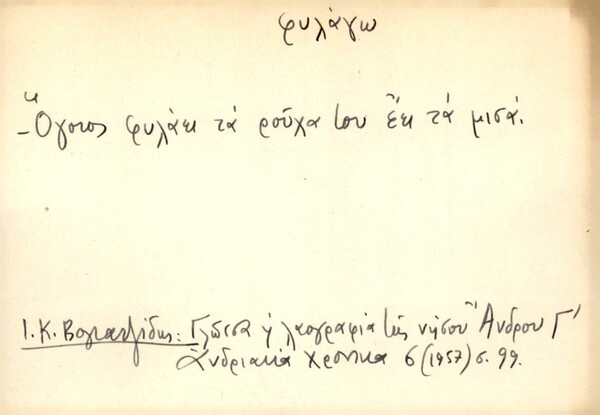 φυλάγω
- Ὅγοιος φυλάει τὰ ροῦχα του ἔει τὰ μισά.
Ι. Κ. Βογιατζίδης: Γλῶσσα ἡ λαογραφία τῆς νήσου Ἄνδρου Γ'
Ἀνδριακὰ χρονικα 6 (1957) σ. 99.